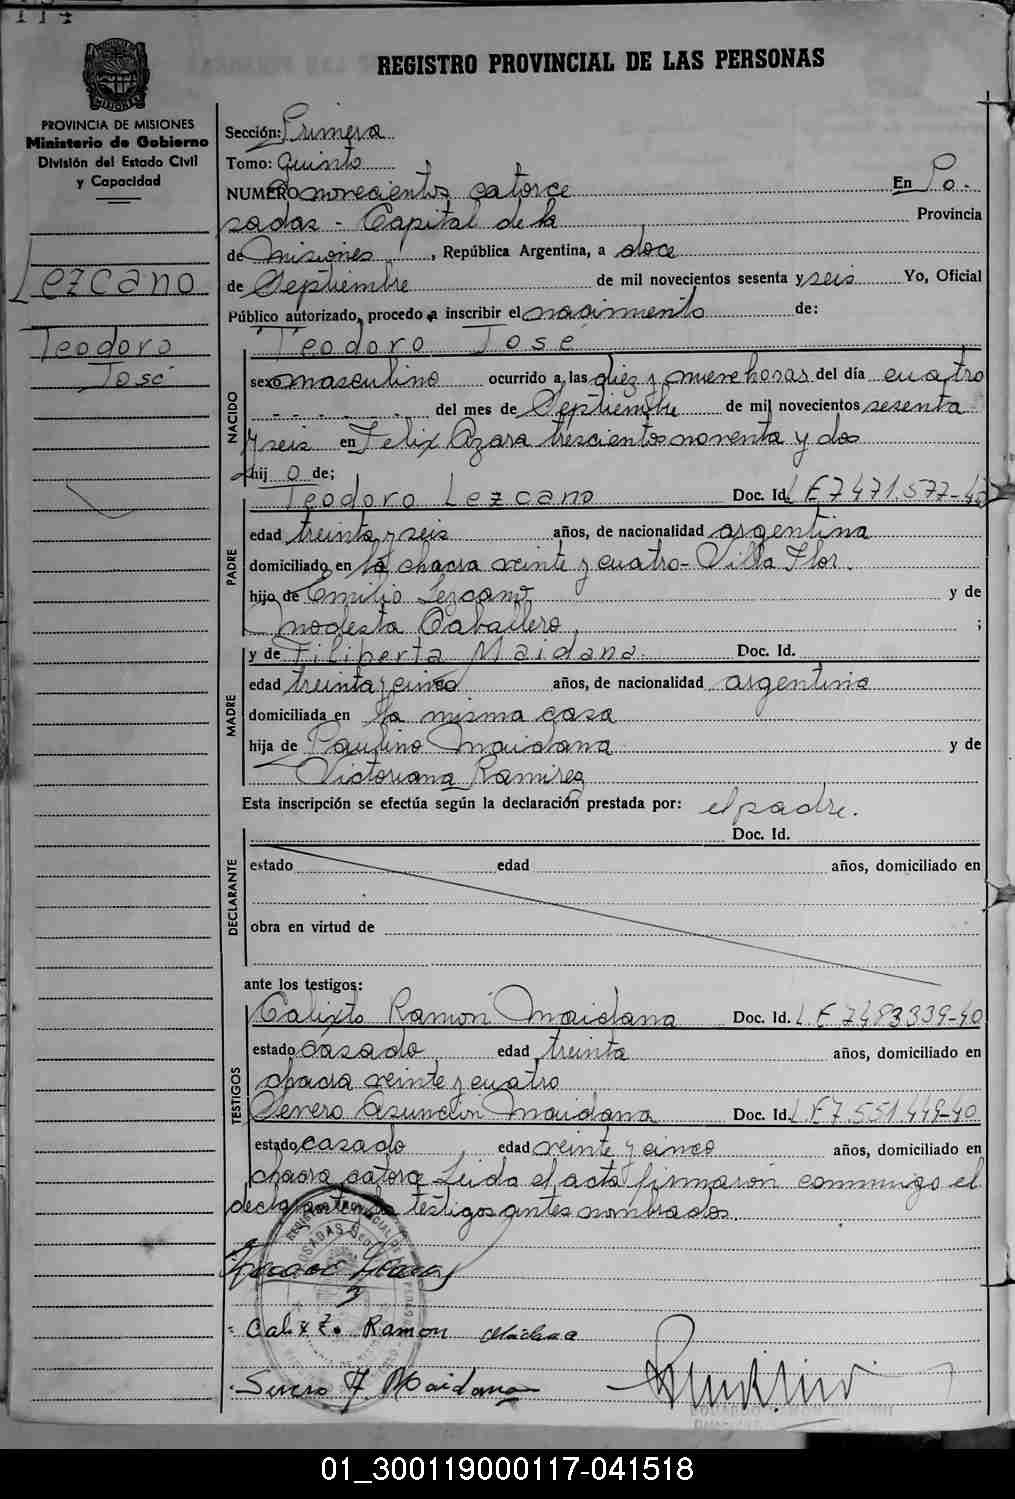 114
REGISTRO PROVINCIAL DE LAS PERSONAS
PROVINCIA DE MISIONES
Ministerio de Gobierno
División del Estado Civil
y Capacidad
Lezcano
Teodoro
José
Sección: Primera
Tomo: quinto
NUMERO novecientos catorce En Po-
sadas - Capital de la Provincia
de Misiones, República Argentina, a doce
de Septiembre de mil novecientos sesenta y seis Yo, Oficial
Público autorizado, procedo a inscribir el nacimiento de:
Teodoro José
NACIDO
sexo masculino ocurrido a las diez y nueve horas del día cuatro
del mes de Septiembre de mil novecientos sesenta
y seis en Felix Azara trescientos noventa y dos
hijo de;
PADRE
Teodoro Lezcano Doc. Id. L E 7471.577-40
edad treinta y seis años, de nacionalidad argentina
domiciliado en la chacra veinte y cuatro - Villa Flor.
hijo de Emilio Lezcano y de
Modesta Caballero, ;
MADRE
y de Filiperta Maidana. Doc. Id.
edad treinta y cinco años, de nacionalidad argentina
domiciliada en la misma casa
hija de Paulino Maidana y de
Victoriana Ramirez
Esta inscripción se efectúa según la declaración prestada por: el padre.
DECLARANTE
Doc. Id.
estado edad años, domiciliado en
obra en virtud de
ante los testigos:
TESTIGOS
Calixto Ramón Maidana Doc. Id. L.E 7483339-40
estado casado edad treinta años, domiciliado en
chacra veinte y cuatro
Severo Asunción Maidana Doc. Id. L.E 7.551.449-40
estado casado edad veinte y cinco años, domiciliado en
chacra catorce Leida el acta firmaron conmigo el
declarante los testigos antes nombrados.
Calixto Ramon
Severo A. Maidana
01_300119000117-041518